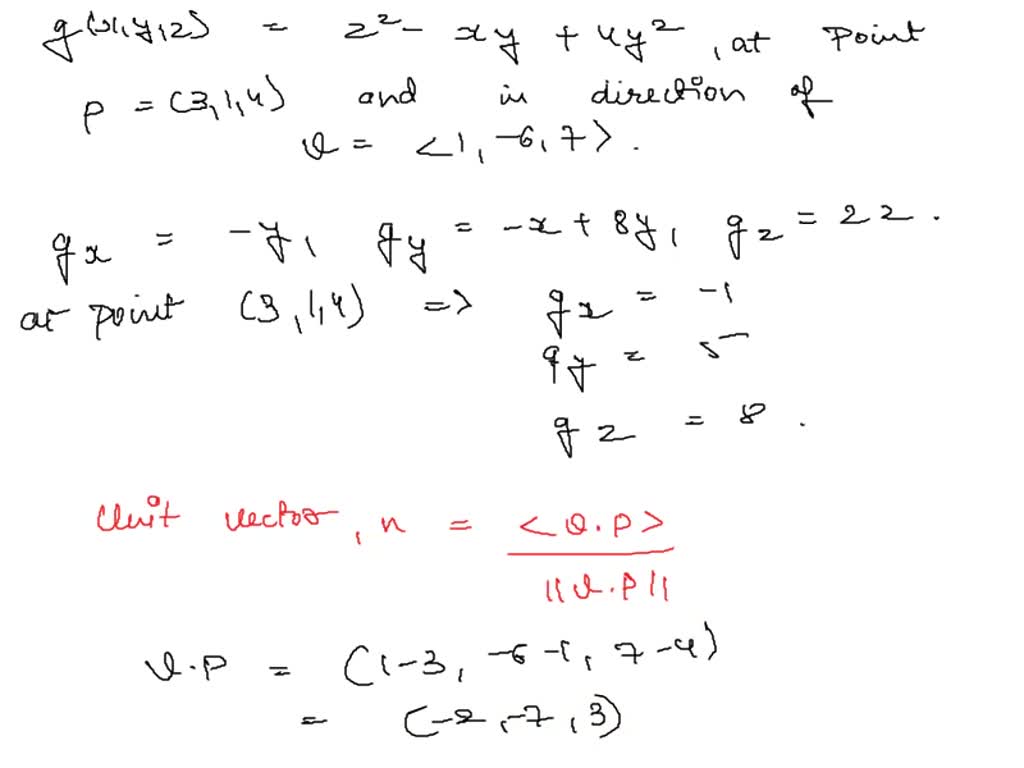 g(x,y,z) = z² - xy + 4y², at point
P = (3,1,4) and in direction of
v = <1, -6, 7>.
gx = -y, gy = -x + 8y, gz = 2z.
at point (3,1,4) => gx = -1
gy = 5
gz = 8.
Unit vector, n = <v.P> / ||v.P||
v.P = (1-3, -6-1, 7-4)
= (-2, -7, 3)